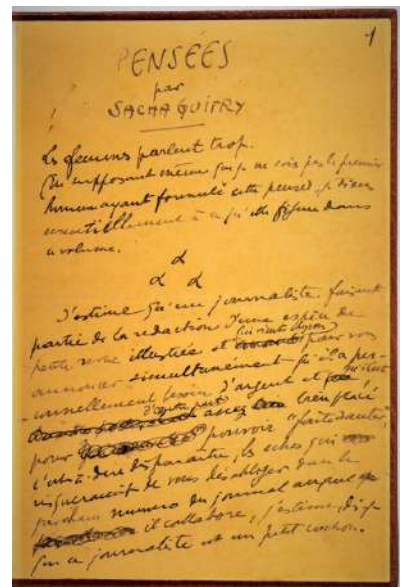 1
PENSÉES
par
SACHA GUITRY
Les femmes parlent trop.
En supposant même que je ne sois pas le premier
homme ayant formulé cette pensée, je tiens
essentiellement à ce qu'elle figure dans
ce volume.
α
α α
J'estime qu'un journaliste faisant
partie de la rédaction d'une espèce de
petite revue illustrée et qui vient chez vous pour vous
annoncer simultanément qu'il a per-
sonnellement besoin d'argent et qu'il est
d'autre part assez bien placé
pour pouvoir
c'est-à-dire disparaître, les échos qui
risqueraient de vous désobliger dans le
prochain numéro du journal auquel
il collabore, j'estime, dis-je
qu'un journaliste est un petit cochon.